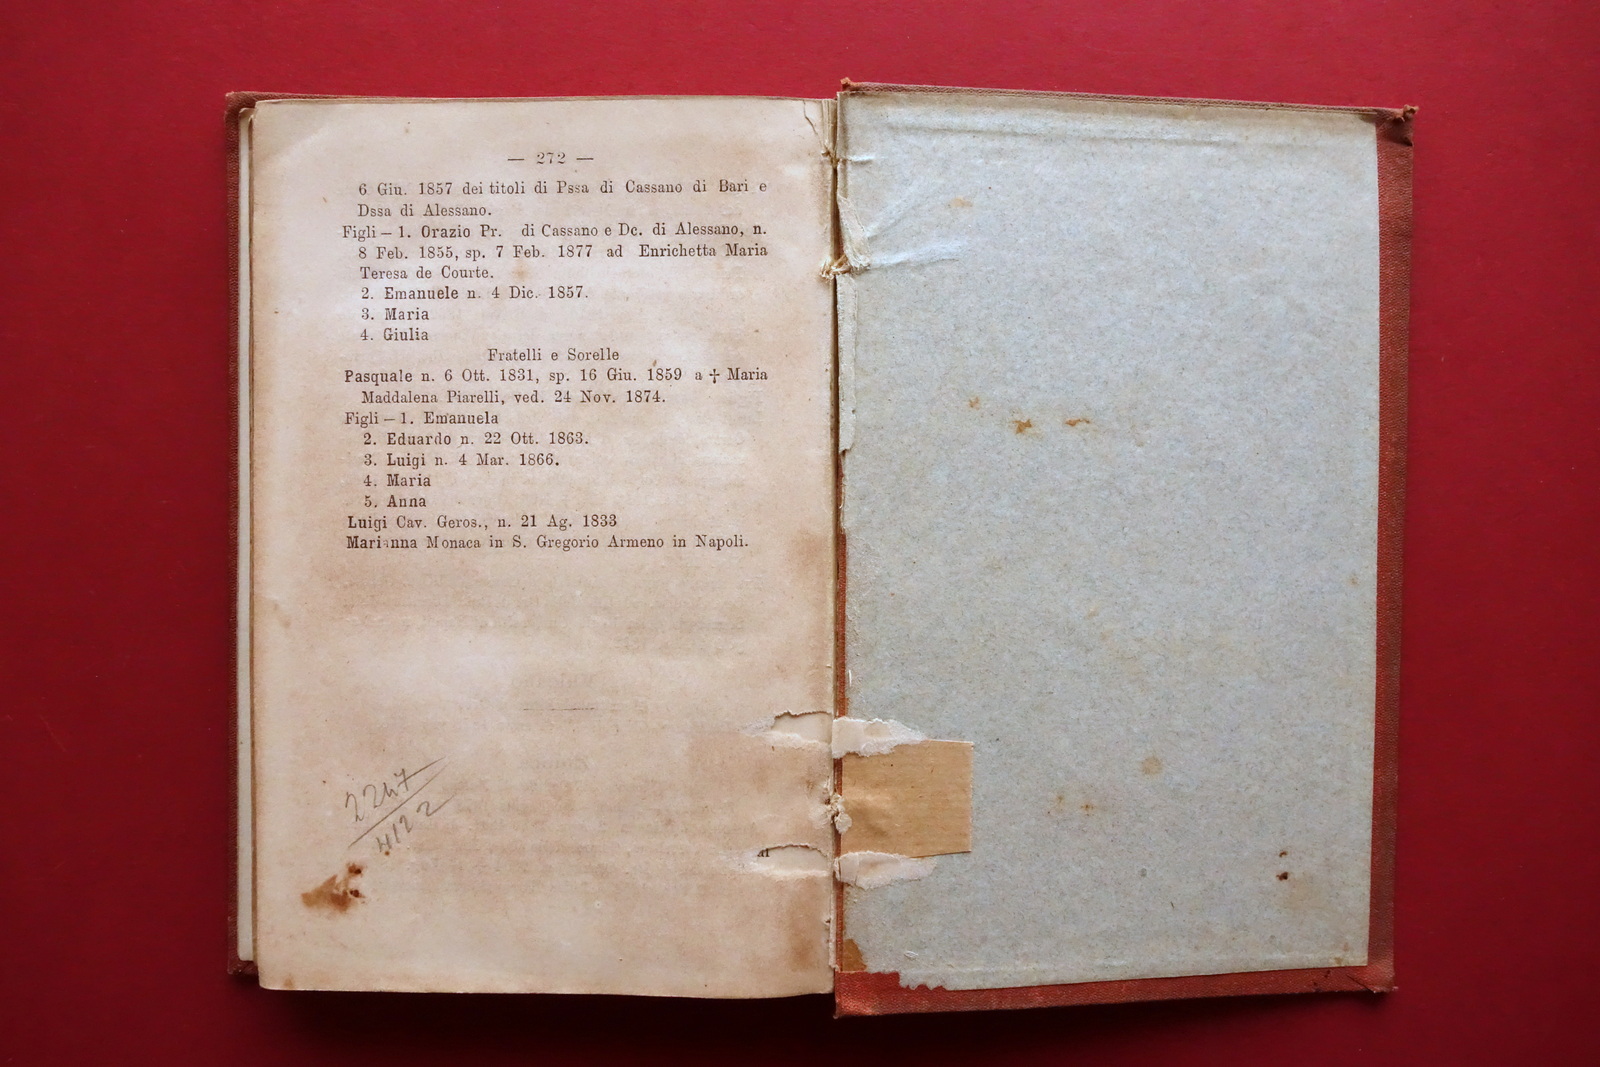 — 272 —
6 Giu. 1857 dei titoli di Pssa di Cassano di Bari e
Dssa di Alessano.
Figli — 1. Orazio Pr. di Cassano e Dc. di Alessano, n.
8 Feb. 1855, sp. 7 Feb. 1877 ad Enrichetta Maria
Teresa de Courte.
2. Emanuele n. 4 Dic. 1857.
3. Maria
4. Giulia
Fratelli e Sorelle
Pasquale n. 6 Ott. 1831, sp. 16 Giu. 1859 a † Maria
Maddalena Piarelli, ved. 24 Nov. 1874.
Figli — 1. Emanuela
2. Eduardo n. 22 Ott. 1863.
3. Luigi n. 4 Mar. 1866.
4. Maria
5. Anna
Luigi Cav. Geros., n. 21 Ag. 1833
Marianna Monaca in S. Gregorio Armeno in Napoli.
2247
4122